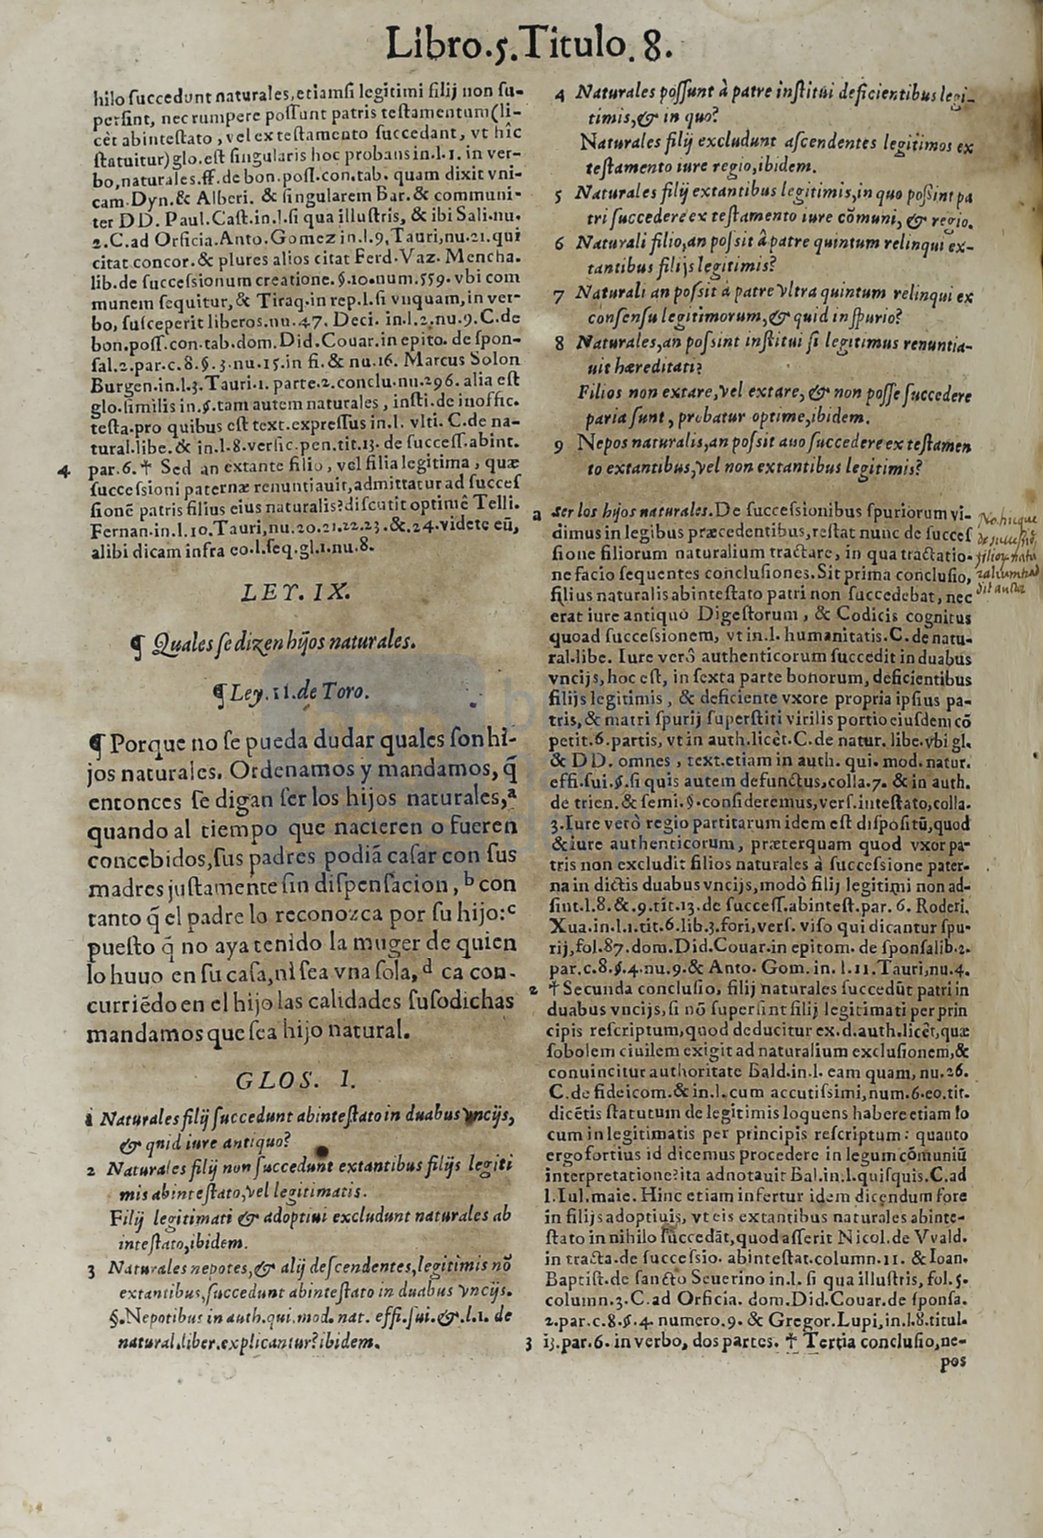 Libro.5.Titulo.8.
hilo ſuccedunt naturales, etiamſi legitimi filij non ſu-
perſint, nec rumpere poſſunt patris teſtamentum (li-
cèt abinteſtato, vel ex teſtamento ſuccedant, vt hîc
ſtatuitur) glo. eſt ſingularis hoc probans in.l.1. in ver-
bo, naturales.ff.de bon.poſſ.con.tab. quam dixit vni-
cam Dyn.& Alberi. & ſingularem Bar.& communi-
ter DD. Paul.Caſt.in.l.ſi qua illuſtris, & ibi Sali.nu.
2.C.ad Orficia.Anto.Gomez in.l.9.Tauri,nu.21.qui
citat concor.& plures alios citat Ferd.Vaz. Mencha.
lib.de ſucceſsionum creatione.§.10.num.559. vbi com
munem ſequitur,& Tiraq.in rep.l.ſi vnquam,in ver-
bo, ſuſceperit liberos.nu.47. Deci. in.l.2.nu.9.C.de
bon.poſſ.con.tab.dom.Did.Couar.in epito. de ſpon-
ſal.2.par.c.8.§.3.nu.15.in fi.& nu.16. Marcus Solon
Burgen.in.l.3.Tauri.1. parte.2.conclu.nu.296. alia eſt
glo.ſimilis in.§.tam autem naturales, inſti.de inoffic.
teſta.pro quibus eſt text.expreſſus in.l. vlti. C.de na-
tural.libe.& in.l.8.verſic.pen.tit.13. de ſucceſſ.abint.
4 par.6.† Sed an extante filio, vel filia legitima, quæ
ſucceſsioni paternæ renuntiauit, admittatur ad ſucceſ
ſionē patris filius eius naturalis? diſcutit optimè Telli.
Fernan.in.l.10.Tauri,nu.20.21.22.23.&.24.videte eū,
alibi dicam infra eo.l.ſeq.gl.1.nu.8.
LEY. IX.
¶ Quales ſe dizen hijos naturales.
¶ Ley.11.de Toro.
¶ Porque no ſe pueda dudar quales ſon hi-
jos naturales. Ordenamos y mandamos, q̄
entonces ſe digan ſer los hijos naturales,ª
quando al tiempo que nacieren o fueren
concebidos, ſus padres podiā caſar con ſus
madres juſtamente ſin diſpenſacion, ᵇ con
tanto q̄ el padre lo reconozca por ſu hijo:ᶜ
pueſto q̄ no aya tenido la muger de quien
lo huuo en ſu caſa, ni ſea vna ſola, ᵈ ca con-
curriēdo en el hijo las calidades ſuſodichas
mandamos que ſea hijo natural.
GLOS. I.
1 Naturales filij ſuccedunt abinteſtato in duabus vncijs,
& quid iure antiquo?
2 Naturales filij non ſuccedunt extantibus filijs legiti
mis abinteſtato, vel legitimatis.
Filij legitimati & adoptiui excludunt naturales ab
inteſtato, ibidem.
3 Naturales nepotes, & alij deſcendentes, legitimis nō
extantibus, ſuccedunt abinteſtato in duabus vncijs.
§.Nepotibus in auth.qui.mod.nat. effi.ſui.&.l.1. de
natural.liber.explicantur? ibidem.
4 Naturales poſſunt à patre inſtitui deficientibus legi-
timis, & in quo?
Naturales filij excludunt aſcendentes legitimos ex
teſtamento iure regio, ibidem.
5 Naturales filij extantibus legitimis, in quo poſsint pa
tri ſuccedere ex teſtamento iure cōmuni, & regio.
6 Naturali filio, an poſsit à patre quintum relinqui ex-
tantibus filijs legitimis?
7 Naturali an poſsit à patre vltra quintum relinqui ex
conſenſu legitimorum, & quid in ſpurio?
8 Naturales, an poſsint inſtitui ſi legitimus renuntia-
uit hæreditati?
Filios non extare, vel extare, & non poſſe ſuccedere
paria ſunt, probatur optime, ibidem.
9 Nepos naturalis, an poſsit auo ſuccedere ex teſtamen
to extantibus, vel non extantibus legitimis?
a Ser los hijos naturales. De ſucceſsionibus ſpuriorum vi-
dimus in legibus præcedentibus, reſtat nunc de ſucceſ
ſione filiorum naturalium tractare, in qua tractatio-
ne facio ſequentes concluſiones. Sit prima concluſio,
filius naturalis abinteſtato patri non ſuccedebat, nec
erat iure antiquo Digeſtorum, & Codicis cognitus
quoad ſucceſsionem, vt in.l. humanitatis.C.de natu-
ral.libe. Iure verò authenticorum ſuccedit in duabus
vncijs, hoc eſt, in ſexta parte bonorum, deficientibus
filijs legitimis, & deficiente vxore propria ipſius pa-
tris, & matri ſpurij ſuperſtiti virilis portio eiuſdem cō
petit.6.partis, vt in auth.licèt.C.de natur. libe.vbi gl.
& DD. omnes, text.etiam in auth. qui. mod. natur.
effi.ſui.§.ſi quis autem defunctus,colla.7. & in auth.
de trien.& ſemi.§.conſideremus,verſ.inteſtato,colla.
3.Iure verò regio partitarum idem eſt diſpoſitū, quod
& iure authenticorum, præterquam quod vxor pa-
tris non excludit filios naturales à ſucceſsione pater-
na in dictis duabus vncijs, modò filij legitimi non ad-
ſint.l.8.&.9.tit.13.de ſucceſſ.abinteſt.par.6. Roderi.
Xua.in.l.1.tit.6.lib.3.fori,verſ. viſo qui dicantur ſpu-
rij,fol.87.dom.Did.Couar.in epitom. de ſponſalib.2.
par.c.8.§.4.nu.9.& Anto. Gom. in. l.11.Tauri,nu.4.
2 † Secunda concluſio, filij naturales ſuccedūt patri in
duabus vncijs, ſi nō ſuperſint filij legitimati per prin
cipis reſcriptum, quod deducitur ex.d.auth.licèt, quæ
ſobolem ciuilem exigit ad naturalium excluſionem, &
conuincitur authoritate Bald.in.l. eam quam, nu.26.
C.de fideicom.& in.l.cum accutiſsimi,num.6.eo.tit.
dicētis ſtatutum de legitimis loquens habere etiam lo
cum in legitimatis per principis reſcriptum: quanto
ergo fortius id dicemus procedere in legum cōmuniū
interpretatione? ita adnotauit Bal.in.l.quiſquis.C.ad
l.Iul.maie. Hinc etiam infertur idem dicendum fore
in filijs adoptiuis, vt eis extantibus naturales abinte-
ſtato in nihilo ſuccedāt, quod aſſerit Nicol.de Vvald.
in tracta.de ſucceſsio. abinteſtat.column.11. & Ioan.
Baptiſt.de ſancto Seuerino in.l. ſi qua illuſtris, fol.5.
column.3.C.ad Orficia. dom.Did.Couar.de ſponſa.
2.par.c.8.§.4. numero.9. & Gregor.Lupi,in.l.8.titul.
3 13.par.6. in verbo, dos partes. † Tertia concluſio, ne-
pos